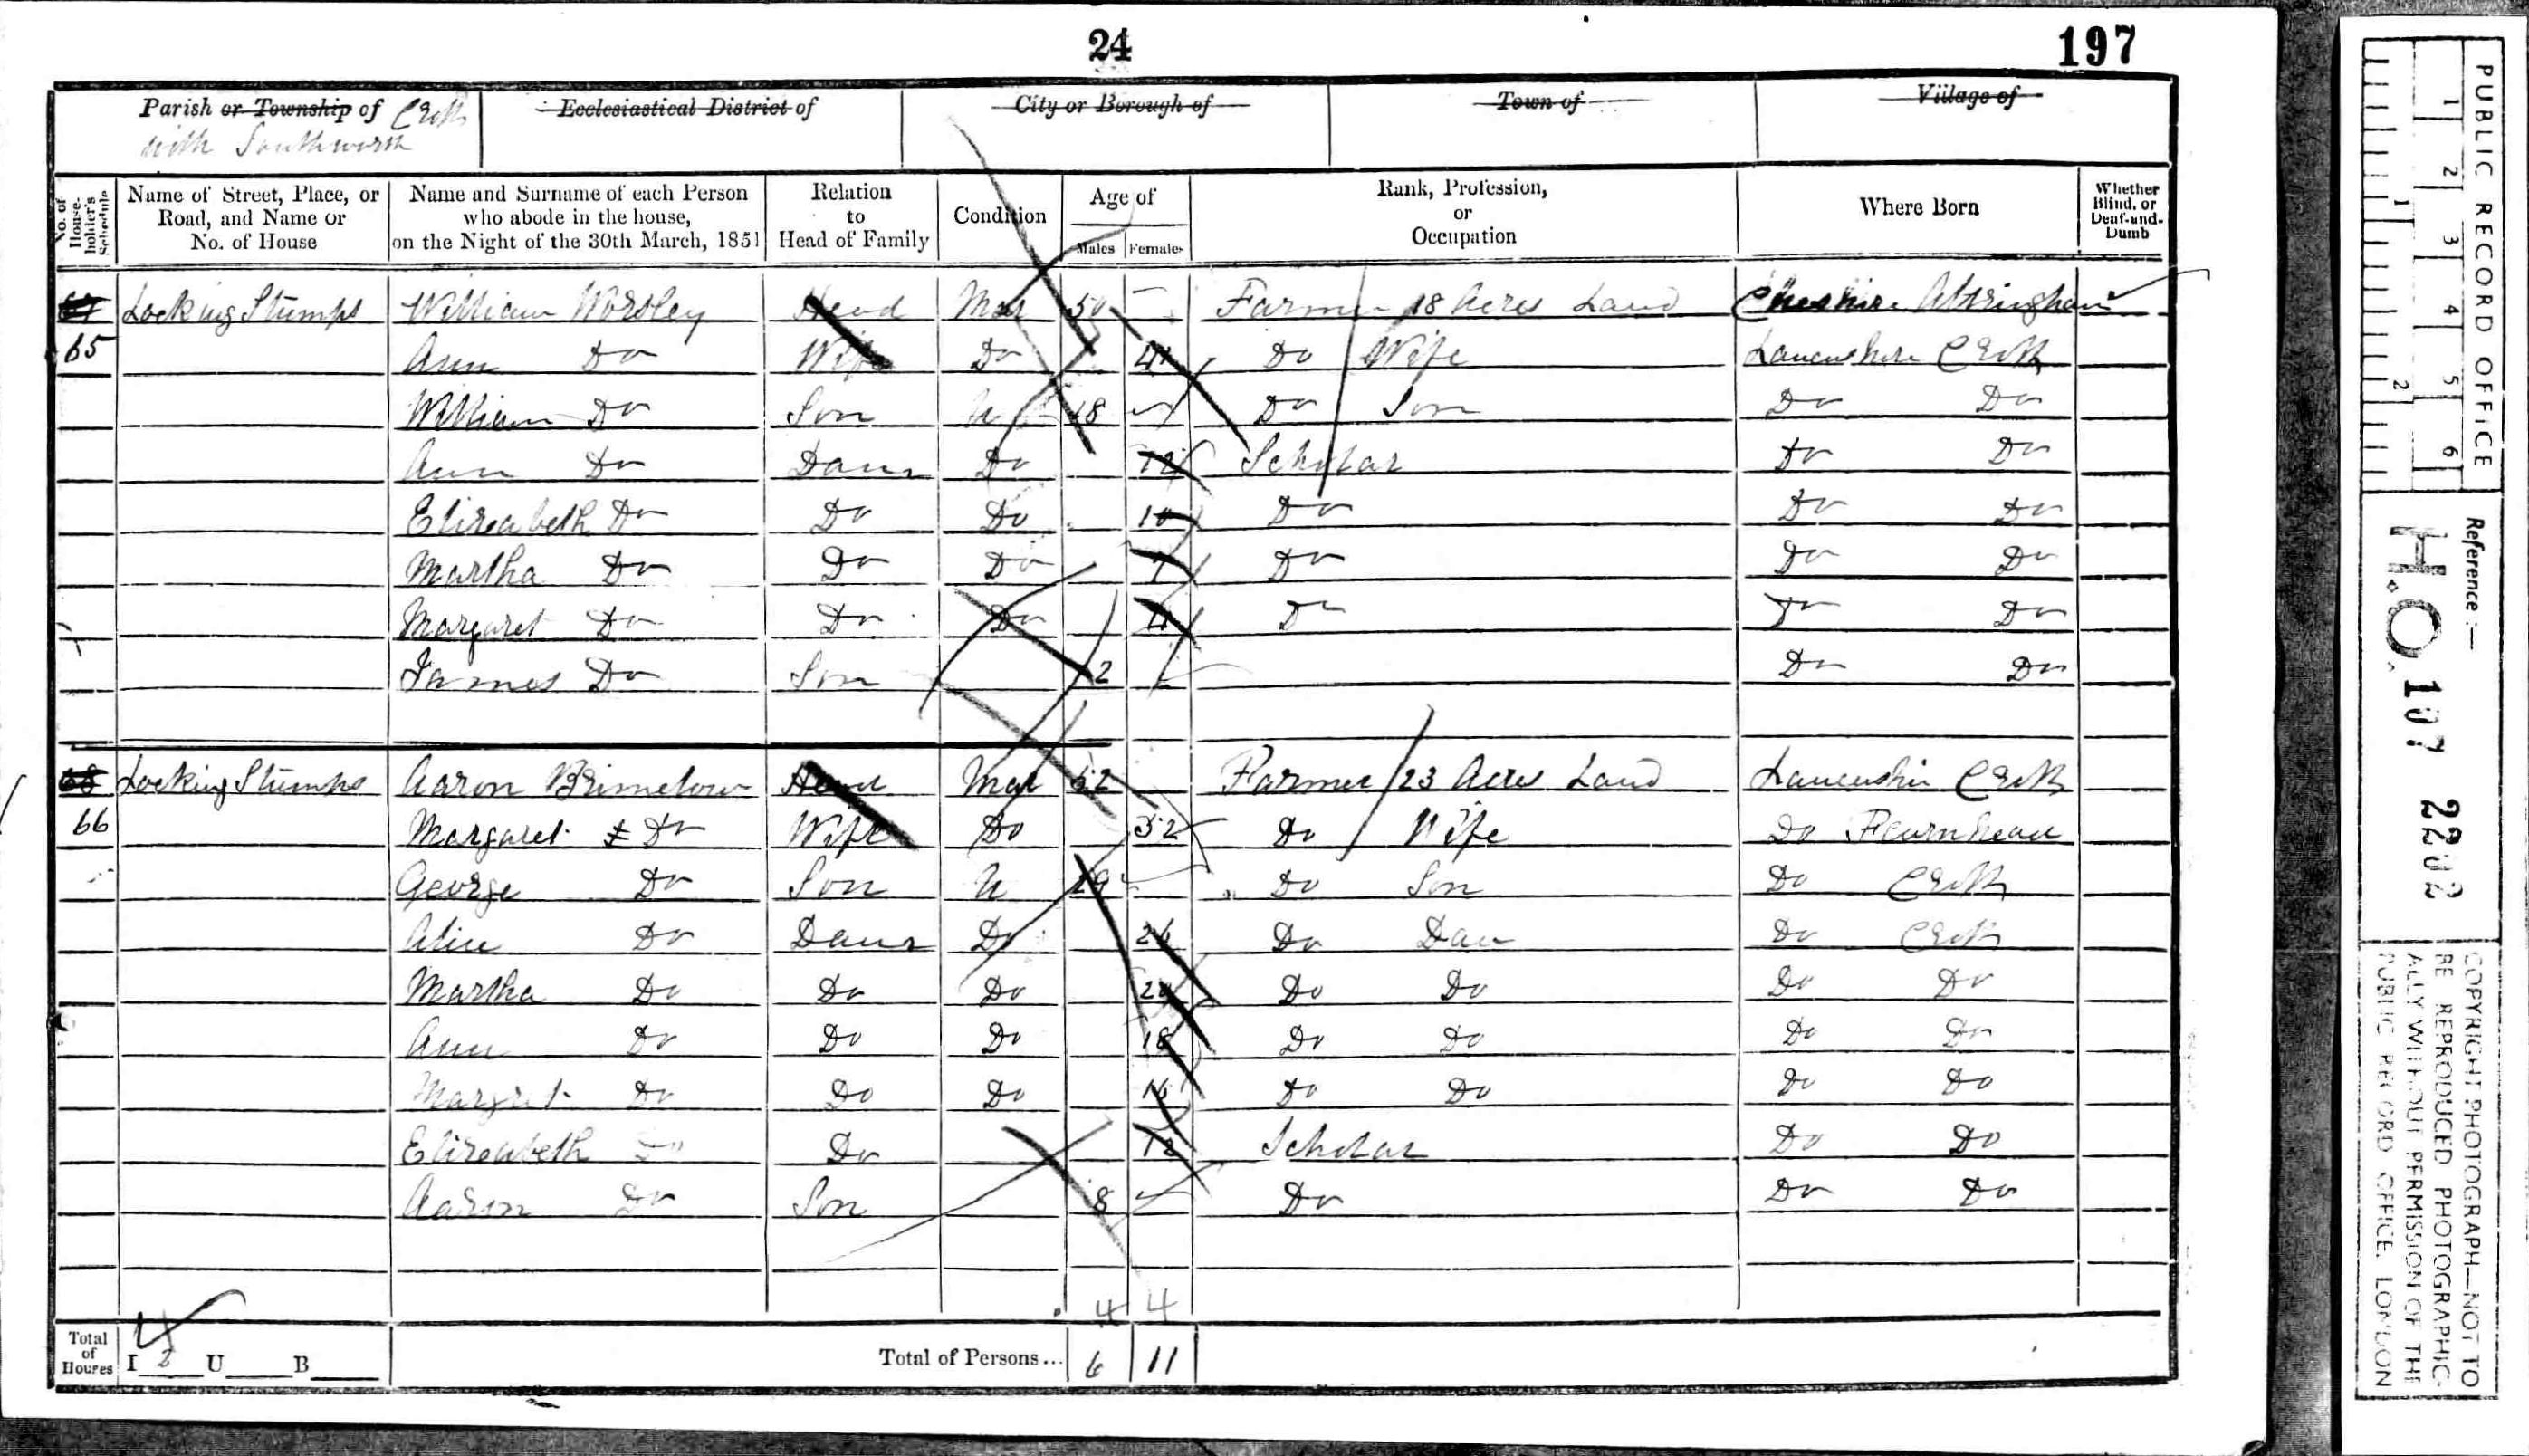 24
197
Parish or Township of Croft with Southworth
Ecclesiastical District of
City or Borough of
Town of
Village of
No. of House-holder's Schedule
Name of Street, Place, or Road, and Name or No. of House
Name and Surname of each Person who abode in the house, on the Night of the 30th March, 1851
Relation to Head of Family
Condition
Age of
Males
Females
Rank, Profession, or Occupation
Where Born
Whether Blind, or Deaf-and-Dumb
65 Locking Stumps William Worsley Head Mar 50 Farmer 18 Acres Land Cheshire Altringham
Ann Do Wife Do 41 Do Wife Lancashire Croft
William Do Son U 18 Do Son Do Do
Ann Do Daur Do 12 Scholar Do Do
Elizeabeth Do Do Do 10 Do Do Do
Martha Do Do Do 7 Do Do Do
Margaret Do Do Do 4 Do Do Do
James Do Son 2 Do Do
68 Locking Stumps Aaron Brimelow Head Mar 52 Farmer 23 Acres Land Lancashire Croft
66 Margaret Do Wife Do 52 Do Wife Do Fearnhead
George Do Son U 29 Do Son Do Croft
Alice Do Daur Do 26 Do Dau Do Croft
Martha Do Do Do Do Do Do Do
Ann Do Do Do 18 Do Do Do Do
Margret Do Do Do 16 Do Do Do Do
Elizeabeth Do Do 12 Scholar Do Do
Aaron Do Son 8 Do Do Do
4 4
Total of Houses I 2 U B
Total of Persons... 6 11
PUBLIC RECORD OFFICE
1 2 3 4 5 6
1 2
Reference :—
H.O. 107 2202
COPYRIGHT PHOTOGRAPH—NOT TO
BE REPRODUCED PHOTOGRAPHIC-
ALLY WITHOUT PERMISSION OF THE
PUBLIC RECORD OFFICE, LONDON